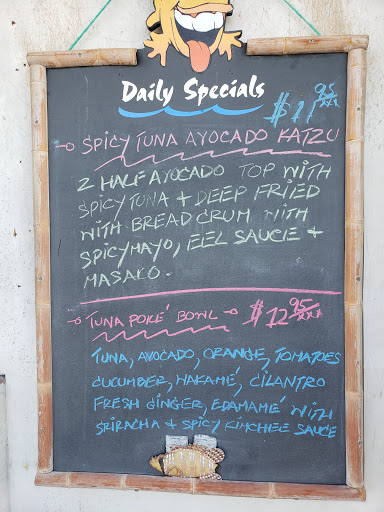 Daily Specials
$11 95/xxx
SPICY TUNA AYOCADO KATZU
2 HALF AVOCADO TOP WITH
SPICYTUNA + DEEP FRIED
WITH BREAD CRUM WITH
SPICYMAYO, EEL SAUCE +
MASAKO.
TUNA POKÉ BOWL $12 95/xxx
TUNA, AVOCADO, ORANGE, TOMATOES
CUCUMBER, WAKAMÉ, CILANTRO
FRESH GINGER, EDAMAMÉ WITH
SRIRACHA + SPICY KIMCHEE SAUCE